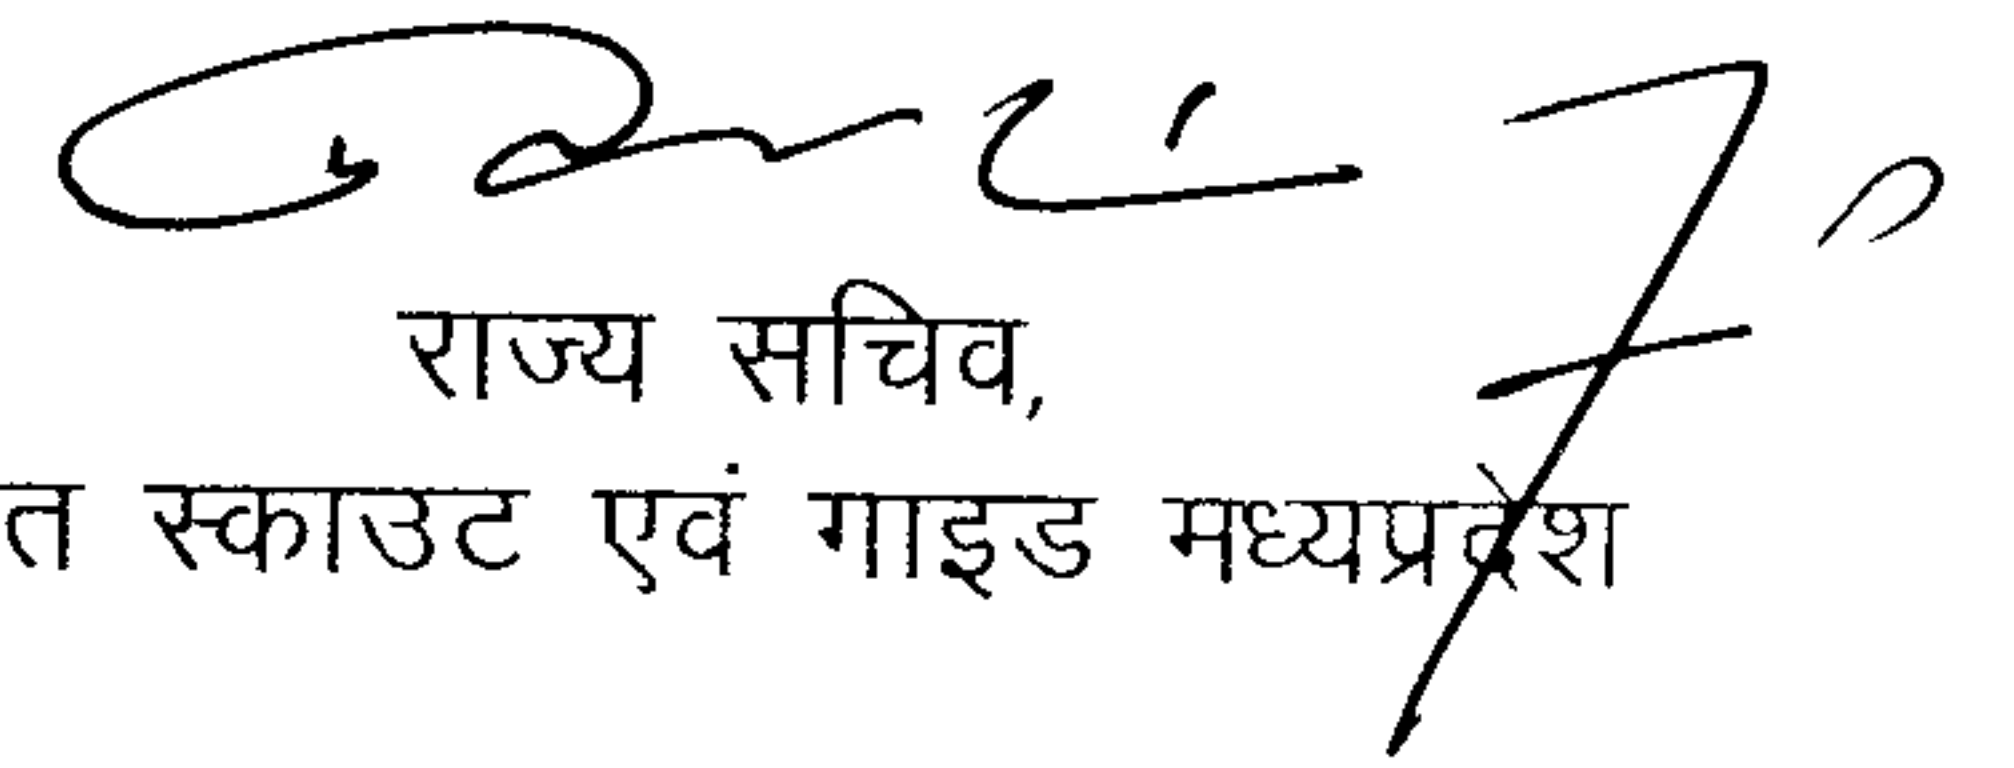 राज्य सचिव,
त स्काउट एवं गाइड मध्यप्रदेश